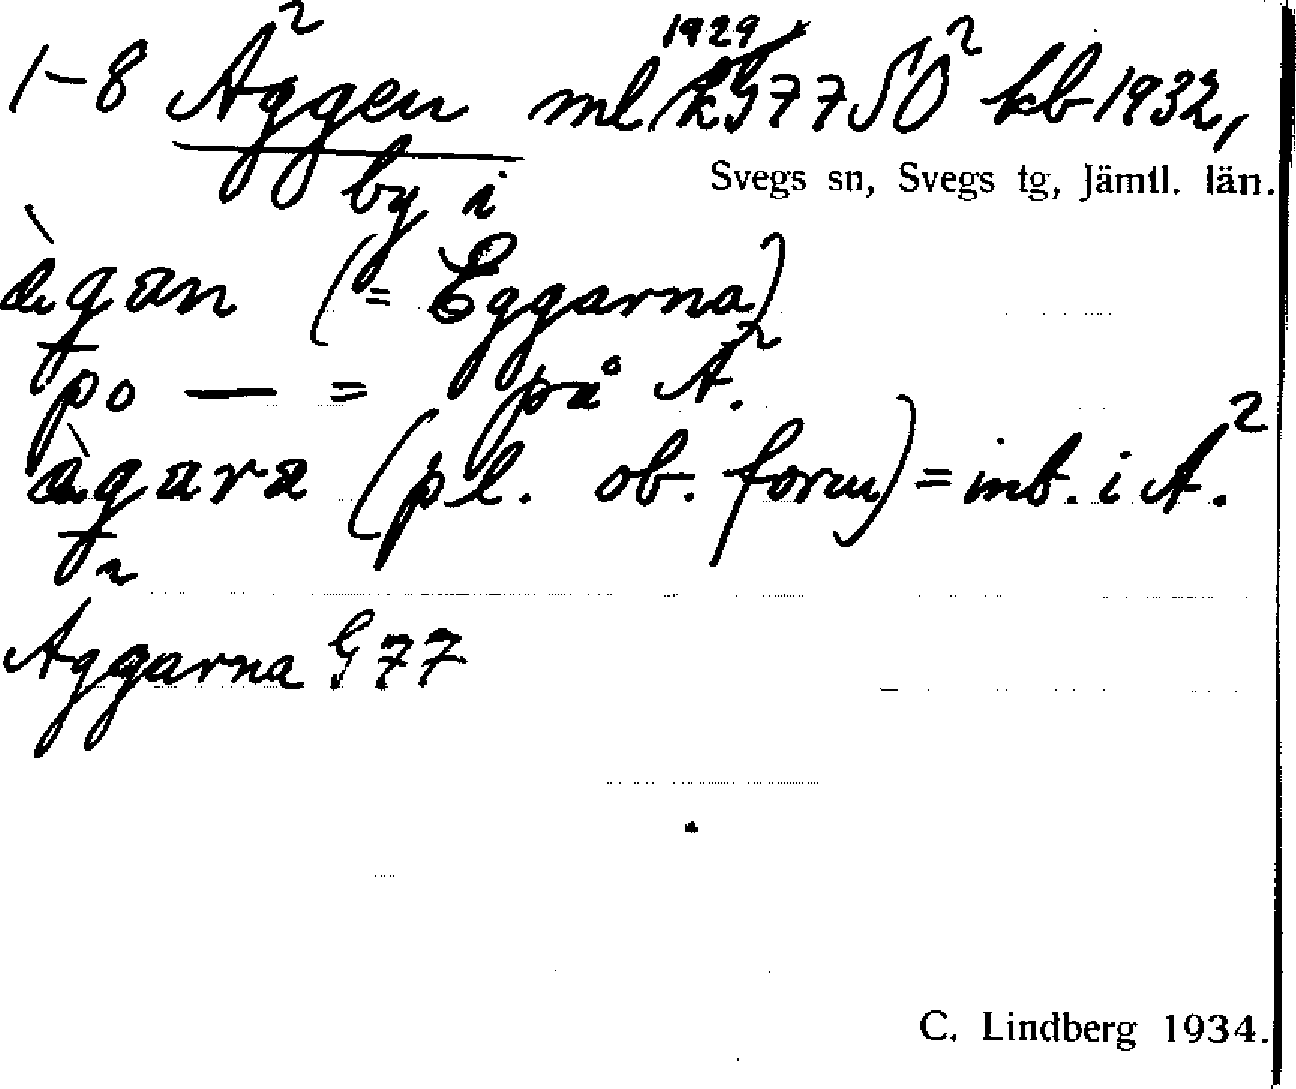 1929
1-8 Äggen ml G77 SO kb 1932,
by i Svegs sn, Svegs tg, Jämtl. län.
ägan (= Eggarna)
po — = på Ä.
ägara (pl. ob. form) = inb. i Ä.
Äggarna G77
C. Lindberg 1934.